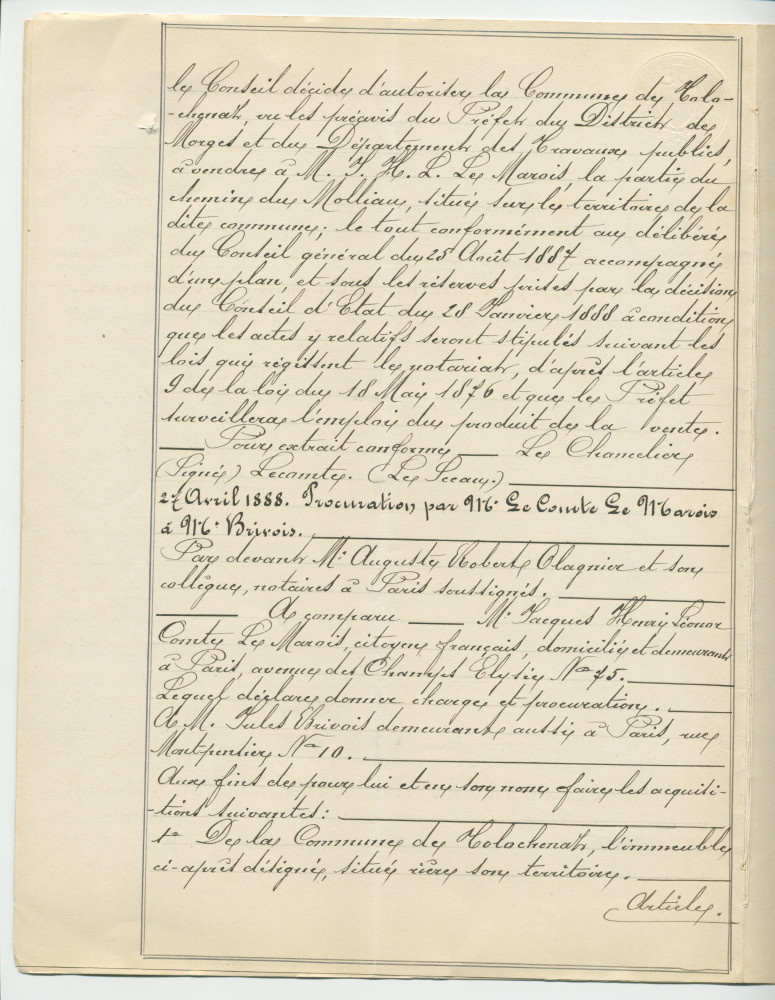 le Conseil décide d'autoriser la Commune de Tolo-
-chenaz, vu les préavis du Préfet du District de
Morges et du Département des Travaux publics,
à vendre à M. J. H. L. Le Marois, la partie du
chemin du Molliau, situé sur le territoire de la
dite commune; le tout conformément au délibéré
du Conseil général du 25 Août 1887 accompagné
d'un plan, et sous les réserves prises par la décision
du Conseil d'Etat du 28 Janvier 1888 à condition
que les actes y relatifs seront stipulés suivant les
lois qui régissent le notariat, d'après l'article
9 de la loi du 18 Mai 1876 et que le Préfet
surveillera l'emploi du produit de la vente.
Pour extrait conforme Le Chancelier
(Signé) Lecomte. (Le Sceau.)
27 Avril 1888. Procuration par Mr. Le Comte Le Marois
à Mr. Brivois.
Par devant Me. Auguste Robert Olagnier et son
collègue, notaires à Paris soussignés.
A comparu Mr. Jacques Henri Léonor
Comte Le Marois, citoyen français, domicilié et demeurant
à Paris, avenue des Champs Elysées No 75.
Lequel déclare donner charge et procuration.
A M. Jules Brivois demeurant aussi à Paris, rue
Montpensier No 10.
Aux fins de pour lui et en son nom faire les acquisi-
-tions suivantes:
1o De la Commune de Tolochenaz, l'immeuble
ci-après désigné, situé rière son territoire.
Article.